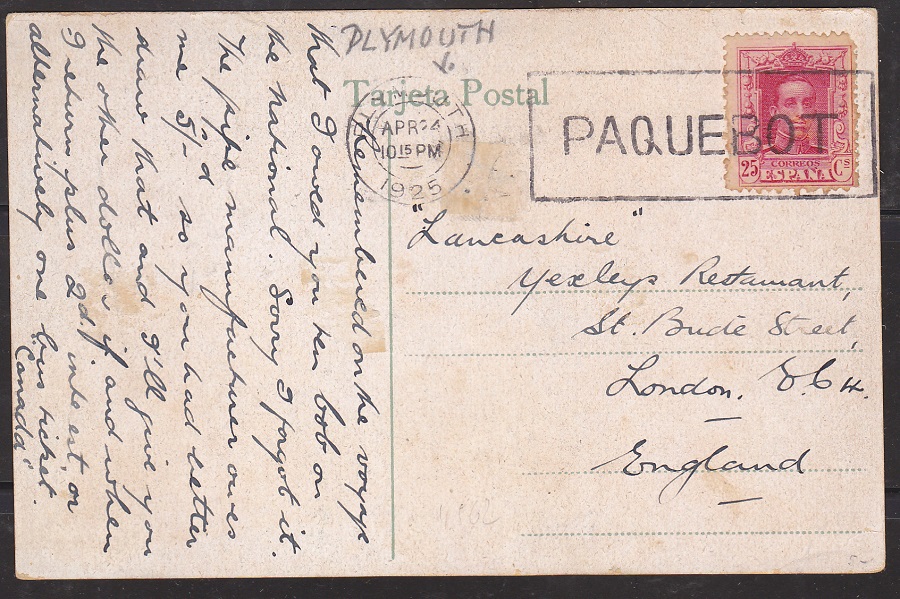 PLYMOUTH
Tarjeta Postal
PLYMOUTH
APR 24
10 15 PM
1925
PAQUEBOT
CORREOS
25 ESPAÑA Cs
Remembered on the voyage
that I owed you ten bob on
the National. Sorry I forgot it.
The pipe manufacturer owes
me 5/- so you had better
draw that and I'll give you
the other dollar if and when
I return plus 2d. interest, or
alternatively one bus ticket.
"Canada".
"Lancashire"
Yexleys Restaurant,
St. Bride Street,
London. E.C.4.
England